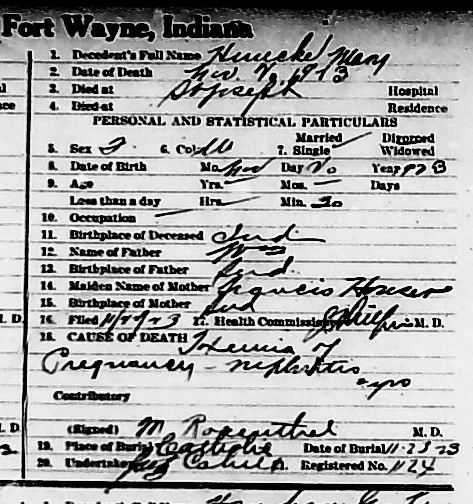 Fort Wayne, Indiana
1. Decedent's Full Name Hueckel Mary
2. Date of Death Nov. 20, 1923
3. Died at St Joseph Hospital
4. Died at Residence
PERSONAL AND STATISTICAL PARTICULARS
Married Divorced
5. Sex F 6. Col W 7. Single Widowed
8. Date of Birth Mo. Nov Day 20 Year 1923
9. Age Yrs. Mos. Days
Less than a day Hrs. Min. 30
10. Occupation
11. Birthplace of Deceased Ind
12. Name of Father Wm
13. Birthplace of Father Ind.
14. Maiden Name of Mother Francis
15. Birthplace of Mother Ind
M. D. 16. Filed 11/27/23 17. Health Commissioner M. D.
18. CAUSE OF DEATH Toxemia of
Pregnancy - nephritis
Contributory
M. D. (Signed) M Rosenthal M. D.
19. Place of Burial Catholic Date of Burial 11-23-23
20. Undertaker Registered No. 1124